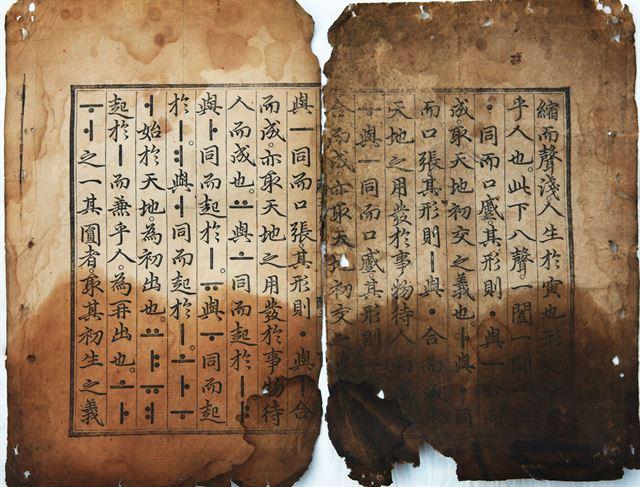 縮而聲淺。人生於寅也。形
乎人也。此下八聲。一闔一闢
ㆍ同而口蹙。其形則ㆍ與ㅡ合而
成。取天地初交之義也。ㅏ與ㆍ同
而口張。其形則ㅣ與ㆍ合而成
天地之用發於事物待人而
ㅜ與ㅡ同而口蹙。其形則ㅡ
合而成。亦取天地初交之
與ㅡ同而口張。其形則ㆍ與ㅣ合
而成。亦取天地之用發於事物待
人而成也。ㅛ與ㅗ同而起於ㅣ。ㅑ
與ㅏ同而起於ㅣ。ㅠ與ㅜ同而起
於ㅣ。ㅕ與ㅓ同而起於ㅣ。ㅗㅏㅜ
ㅓ始於天地。為初出也。ㅛㅑㅠㅕ
起於ㅣ而兼乎人。為再出也。ㅗㅏ
ㅜㅓ之一其圓者。取其初生之義